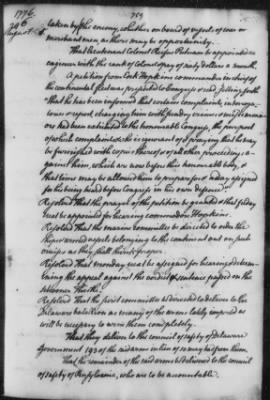 1776.
259
taken by the enemy, whether on board of vessels of war or
merchantmen, as there may be opportunity.
That Lieutenant Colonel Rufus Putnam be appointed an
engineer with the rank of Colonel & pay of sixty dollars a month.
A petition from Esek Hopkins commander in chief of
the continental fleet was presented to Congress & read setting forth
"that he has been informed that certain complaints
charging him with
have been exhibited to the honorable Congress, the purport
of which complaints he is ignorant of & praying that he may
be furnished with copies thereof & of all other proceedings a-
gainst him, which are now before this honorable body, &
that time may be allowed him to prepare for & a day assigned
for his being heard before Congress in his own defence."
Resolved That the prayer of the petition be granted & that friday
next be appointed for hearing commodore Hopkins.
Resolved That the marine committee be directed to order the
ships & armed vessels belonging to the continent out on such
cruizes as they shall think proper.
Resolved That monday next be assigned for hearing & determi-
ning the appeal against the verdict & sentence passed on the
schooner Thistle.
Resolved That the secret committee be directed to deliver to the
Delaware battalion as many of the arms lately imported as
will be necessary to arm them completely.
That they deliver to the council of safety of Delaware
Government 193 of the said arms
That the remainder of the said arms be delivered to the council
of safety of Pensylvania, who are to be accountable.